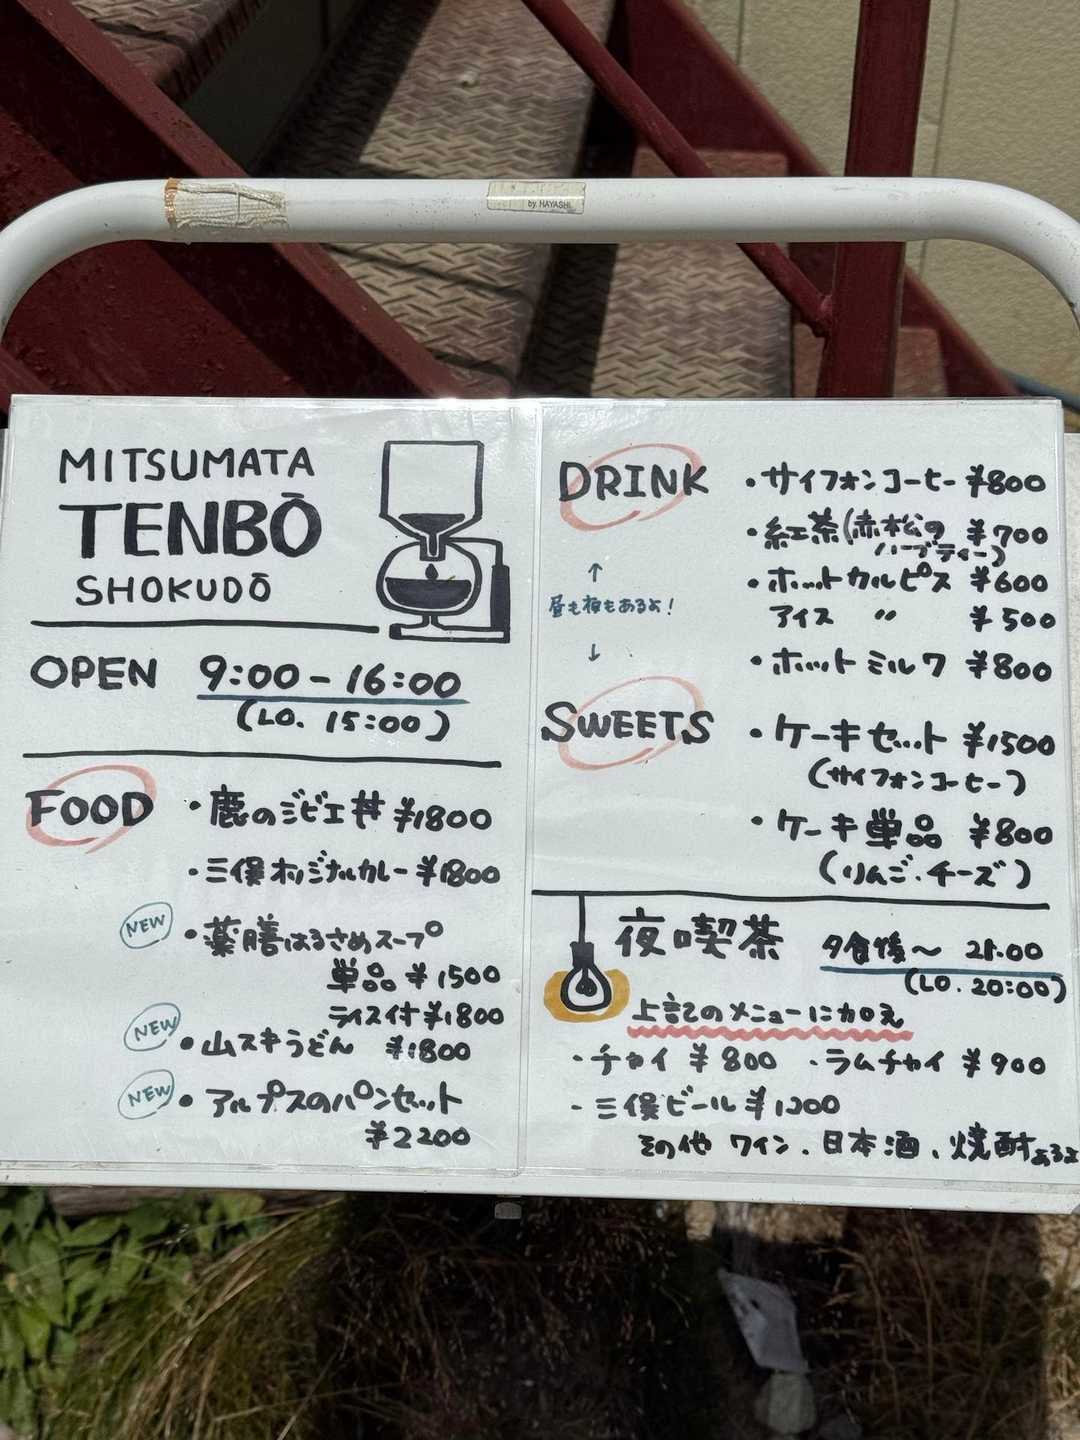 by HAYASHI
MITSUMATA
TENBŌ
SHOKUDŌ
OPEN 9:00-16:00
(LO. 15:00)
FOOD
・鹿のジビエ丼 ¥1800
・三俣オリジナルカレー ¥1800
NEW ・薬膳はるさめスープ
単品 ¥1500
ライス付 ¥1800
NEW ・山スキうどん ¥1800
NEW ・アルプスのパンセット
¥2200
DRINK
・サイフォンコーヒー ¥800
・紅茶(赤松の ¥700
ハーブティー)
・ホットカルピス ¥600
アイス 〃 ¥500
・ホットミルク ¥800
↑
昼も夜もあるよ!
↓
SWEETS
・ケーキセット ¥1500
(サイフォンコーヒー)
・ケーキ単品 ¥800
(りんご・チーズ)
夜喫茶 夕食後〜 21:00
(LO. 20:00)
上記のメニューに加え
・チャイ ¥800 ・ラムチャイ ¥900
・三俣ビール ¥1200
その他 ワイン、日本酒、焼酎あるよ